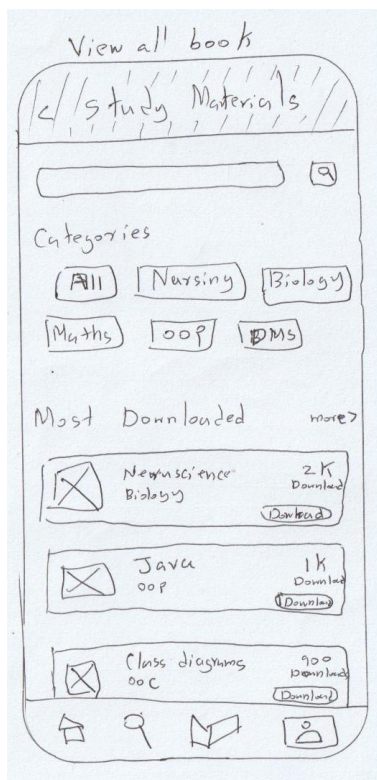 View all book
< Study Materials
Categories
All Nursing Biology
Maths OOP DMS
Most Downloaded more>
Neuruscience 2K
Biology Download
Donload
Java 1K
OOP Download
Downlad
Class diagrams 900
OOC Downloads
Download